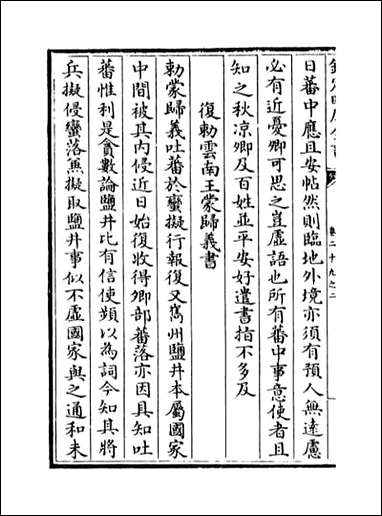 日蕃中應且安帖然則臨地外境亦須有預人無遠慮
必有近憂卿可思之豈虛語也所有蕃中事意使者且
知之秋凉卿及百姓並平安好遣書指不多及
復勅雲南王蒙歸義書
勅蒙歸義吐蕃於蠻擬行報復又嶲州鹽井本屬國家
中間被其内侵近日始復收得卿部蕃落亦因具知吐
蕃惟利是貪數論鹽井比有信使頻以為詞今知其將
兵擬侵蠻落無擬取鹽井事似不虛國家與之通和未
卷二十九之二